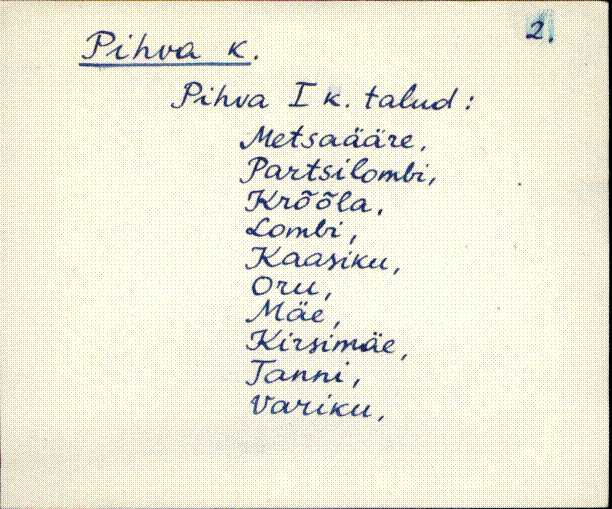 2.
Pihva k.
Pihva I k. talud:
Metsaääre,
Partsilombi,
Krõõla,
Lombi,
Kaasiku,
Oru,
Mäe,
Kirsimäe,
Tanni,
Variku,